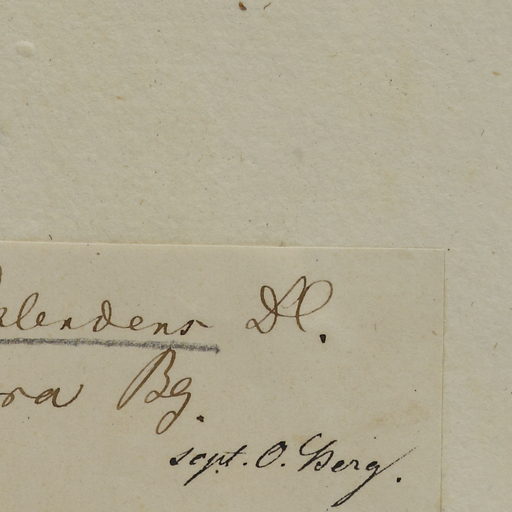 splendens Dl.
ra Bg.
scpt. O. Berg.